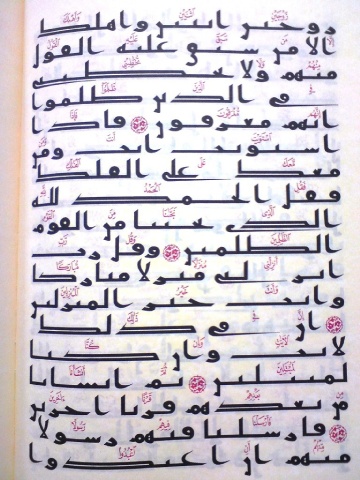 زوجين اثنين واهلك
الا من سبق عليه القول
منهم ولا تخطبني
في الذين ظلموا
انهم مغرقون ۝ فاذا
استويت انت ومن
معك على الفلك
فقل الحمد لله
الذي نجينا من القوم
الظلمين ۝ وقل رب
انزلني منزلا مباركا
وانت خير المنزلين
۝ ان في ذلك
لايت وان كنا
لمبتلين ۝ ثم انشانا
من بعدهم قرنا اخرين
۝ فارسلنا فيهم رسولا
منهم ان اعبدوا